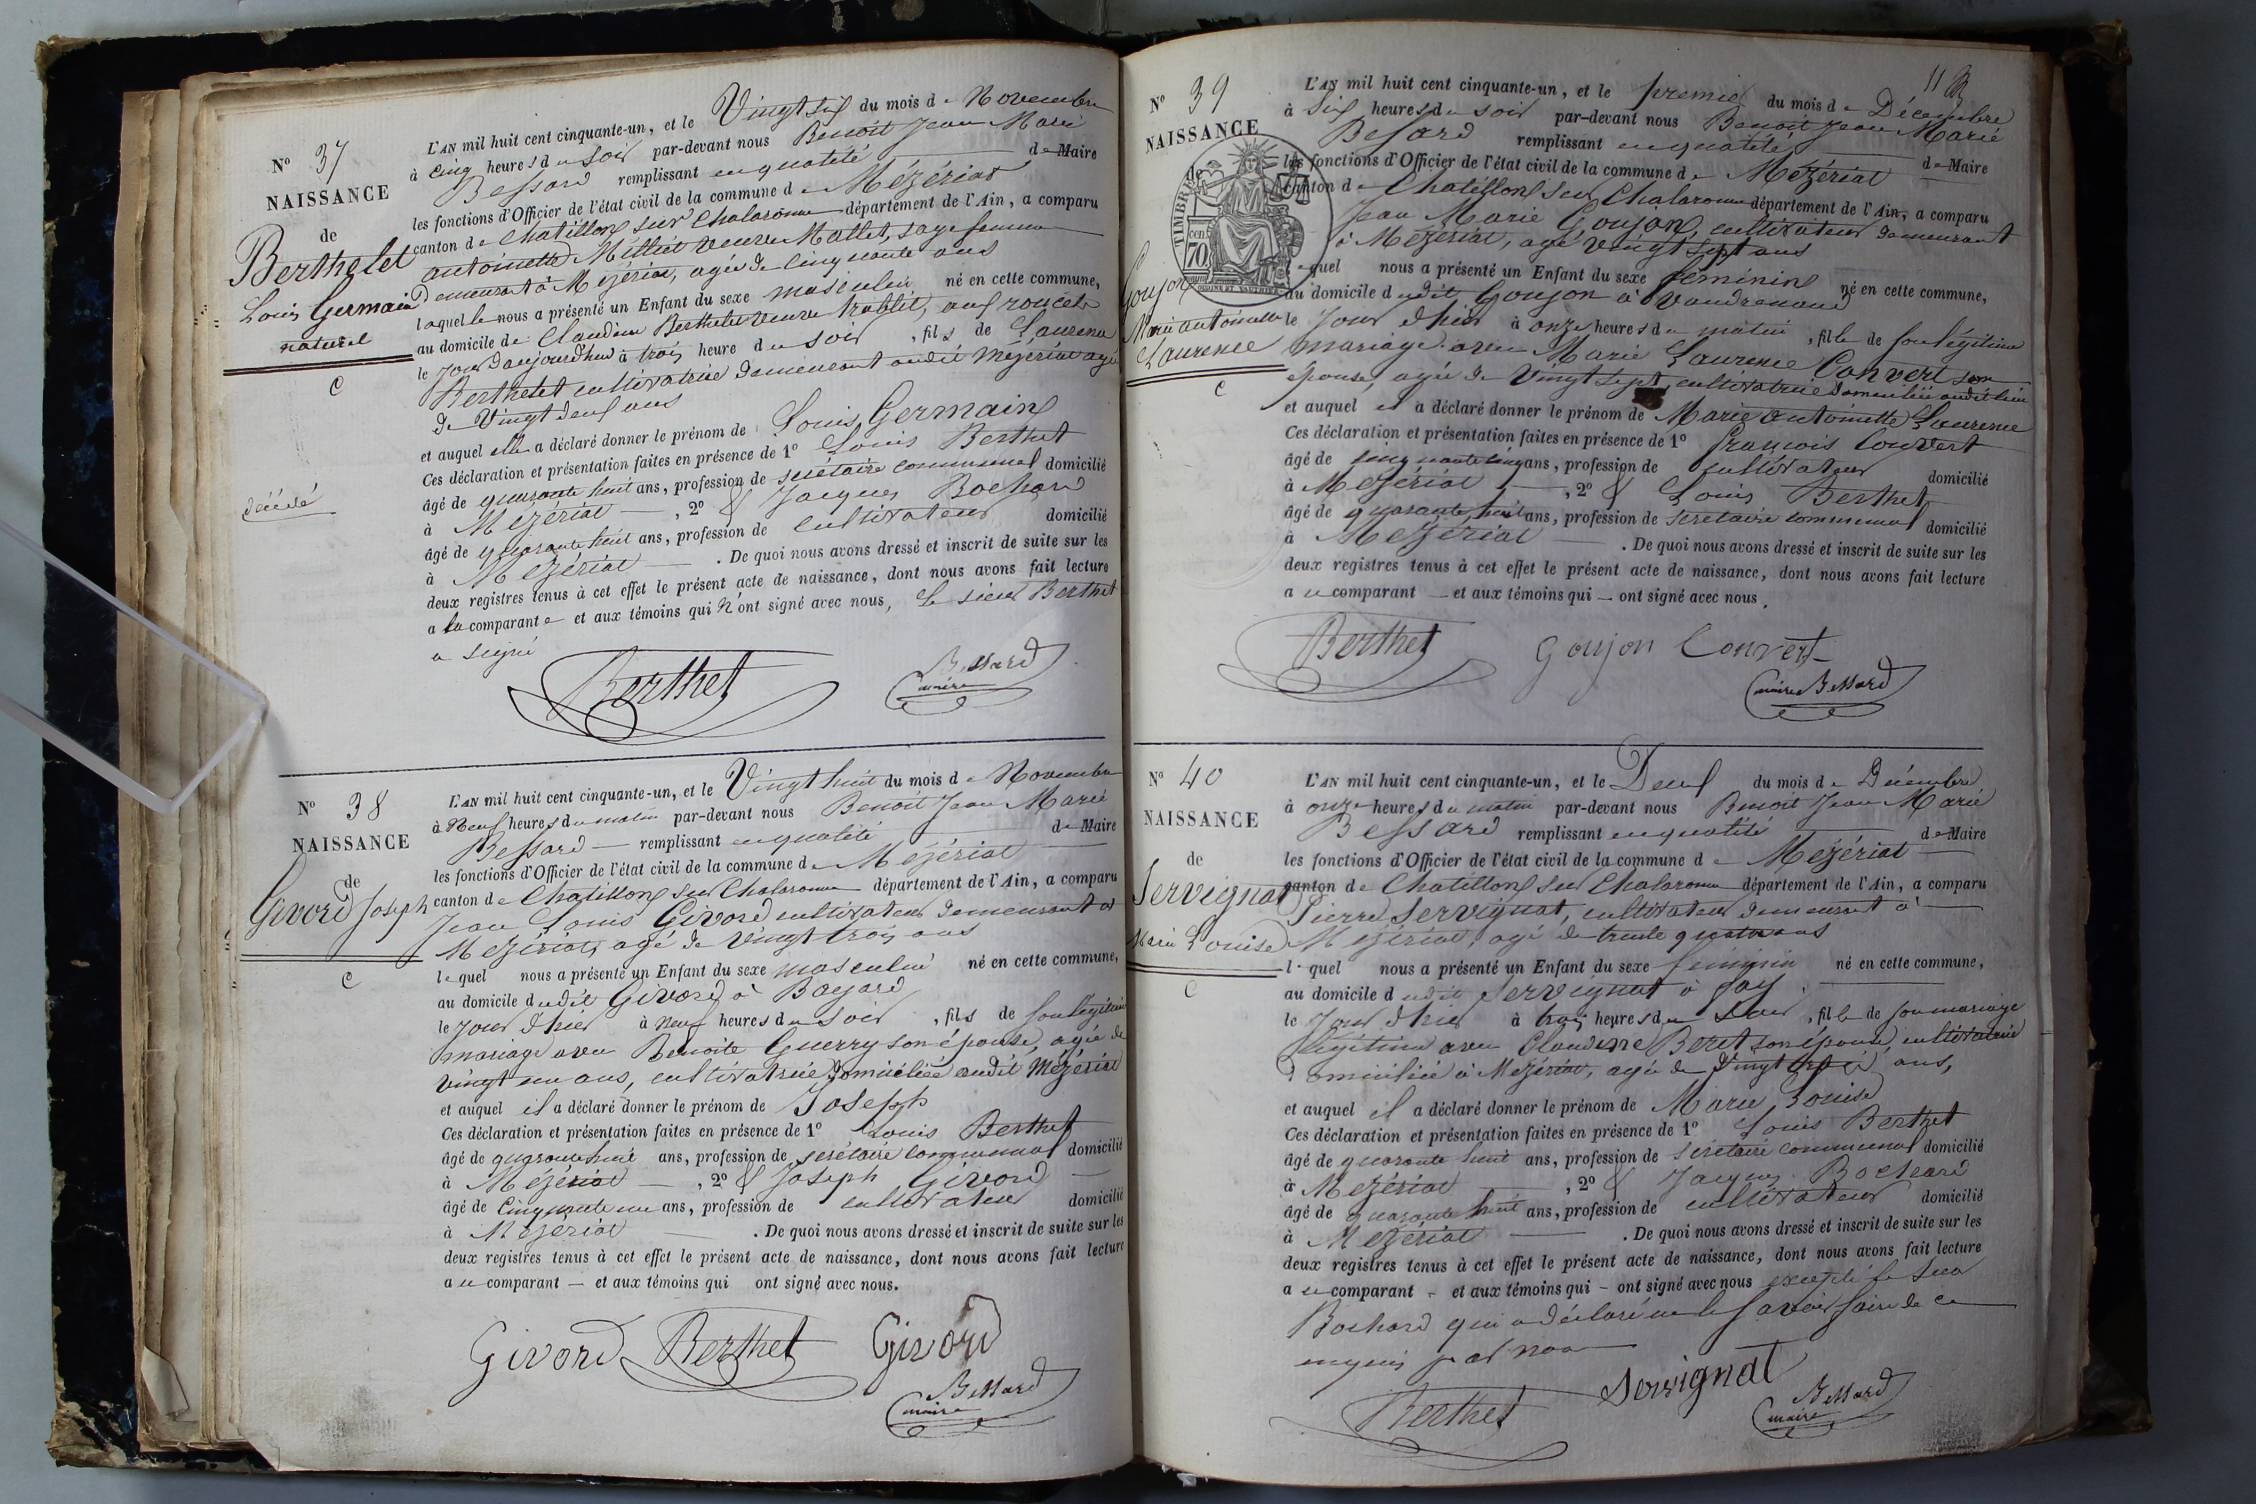 N° 37
NAISSANCE
de
Berthelet
Louis Germain
naturel
C
décédé
L'AN mil huit cent cinquante-un, et le Vingt six du mois de Novembre
à cinq heures du soir par-devant nous Benoit Jean Marie
Bessard remplissant en qualité de Maire
les fonctions d'Officier de l'état civil de la commune de Mézériat
canton de Chatillon sur Chalaronne département de l'Ain, a comparu
antoinette Millet veuve Mallet, sage femme
demeurant à Mézériat, agée de cinquante ans
laquelle nous a présenté un Enfant du sexe masculin né en cette commune,
au domicile de Claudine Berthelet veuve trablit, aux roucets
le jour d'aujourd'hui à trois heure du soir, fils de Laurence
Berthelet cultivatrice demeurant audit Mézériat agée
de Vingt deux ans
et auquel elle a déclaré donner le prénom de Louis Germain
Ces déclaration et présentation faites en présence de 1° Louis Berthet
âgé de quarante huit ans, profession de secrétaire communal domicilié
à Mézériat, 2° & Jacques Bochard
âgé de quarante huit ans, profession de cultivateur domicilié
à Mézériat. De quoi nous avons dressé et inscrit de suite sur les
deux registres tenus à cet effet le présent acte de naissance, dont nous avons fait lecture
a la comparante et aux témoins qui n'ont signé avec nous, le sieur Berthet
a signé
Berthet Bessard
maire
N° 38
NAISSANCE
de
Givord Joseph
C
L'AN mil huit cent cinquante-un, et le Vingt huit du mois de Novembre
à Neuf heures du matin par-devant nous Benoit Jean Marie
Bessard remplissant en qualité de Maire
les fonctions d'Officier de l'état civil de la commune de Mézériat
canton de Chatillon sur Chalaronne département de l'Ain, a comparu
Jean Louis Givord cultivateur demeurant à
Mézériat, agé de vingt trois ans
lequel nous a présenté un Enfant du sexe masculin né en cette commune,
au domicile dudit Givord à Bayard
le jour d'hier à neuf heures du soir, fils de son légitime
mariage avec Benoite Guerry son épouse, agée de
vingt un ans, cultivatrice domiciliée audit Mézériat
et auquel il a déclaré donner le prénom de Joseph
Ces déclaration et présentation faites en présence de 1° Louis Berthet
âgé de quarante huit ans, profession de secrétaire communal domicilié
à Mézériat, 2° & Joseph Givord
âgé de Cinquante un ans, profession de cultivateur domicilié
à Mézériat. De quoi nous avons dressé et inscrit de suite sur les
deux registres tenus à cet effet le présent acte de naissance, dont nous avons fait lecture
a u comparant et aux témoins qui ont signé avec nous.
Givord Berthet Givord
Bessard
maire
11
N° 39
NAISSANCE
TIMBRE
70
cen
Goujon
Marie antoinette
Laurence
C
L'AN mil huit cent cinquante-un, et le premier du mois de Décembre
à six heures du soir par-devant nous Benoit Jean Marie
Bessard remplissant en qualité de Maire
les fonctions d'Officier de l'état civil de la commune de Mézériat
canton de Chatillon sur Chalaronne département de l'Ain, a comparu
Jean Marie Goujon, cultivateur demeurant
à Mézériat, agé vingt sept ans
lequel nous a présenté un Enfant du sexe féminin né en cette commune,
au domicile dudit Goujon à Vaudrenaud
le Jour d'hier à onze heures du matin, fille de son légitime
mariage avec Marie Laurence Convert son
épouse, agée de Vingt sept, cultivatrice domiciliée audit lieu
et auquel il a déclaré donner le prénom de Marie antoinette Laurence
Ces déclaration et présentation faites en présence de 1° françois Convert
âgé de cinquante cinq ans, profession de cultivateur domicilié
à Mézériat, 2° & Louis Berthet
âgé de quarante huit ans, profession de secrétaire communal domicilié
à Mézériat. De quoi nous avons dressé et inscrit de suite sur les
deux registres tenus à cet effet le présent acte de naissance, dont nous avons fait lecture
a u comparant et aux témoins qui ont signé avec nous.
Berthet Goujon Convert
maire Bessard
N° 40
NAISSANCE
de
Servignat
Marie Louise
C
L'AN mil huit cent cinquante-un, et le Deux du mois de Décembre
à onze heures du matin par-devant nous Benoit Jean Marie
Bessard remplissant en qualité de Maire
les fonctions d'Officier de l'état civil de la commune de Mézériat
canton de Chatillon sur Chalaronne département de l'Ain, a comparu
Pierre Servignat, cultivateur demeurant à
Mézériat, agé de trente quatre ans
lequel nous a présenté un Enfant du sexe feminin né en cette commune,
au domicile dudit Servignat à Fay
le Jour d'hier à trois heures du soir, fille de son mariage
légitime avec Claudine Beret son épouse, cultivatrice
domiciliée à Mézériat, agée de Vingt ans,
et auquel il a déclaré donner le prénom de Marie Louise
Ces déclaration et présentation faites en présence de 1° Louis Berthet
âgé de quarante huit ans, profession de secrétaire communal domicilié
à Mézériat, 2° & Jacques Bochard
âgé de quarante huit ans, profession de cultivateur domicilié
à Mézériat. De quoi nous avons dressé et inscrit de suite sur les
deux registres tenus à cet effet le présent acte de naissance, dont nous avons fait lecture
a u comparant et aux témoins qui ont signé avec nous excepté le sieur
Bochard qui a déclaré ne le savoir faire de ce
enquis par nous
Berthet Servignat Bessard
maire